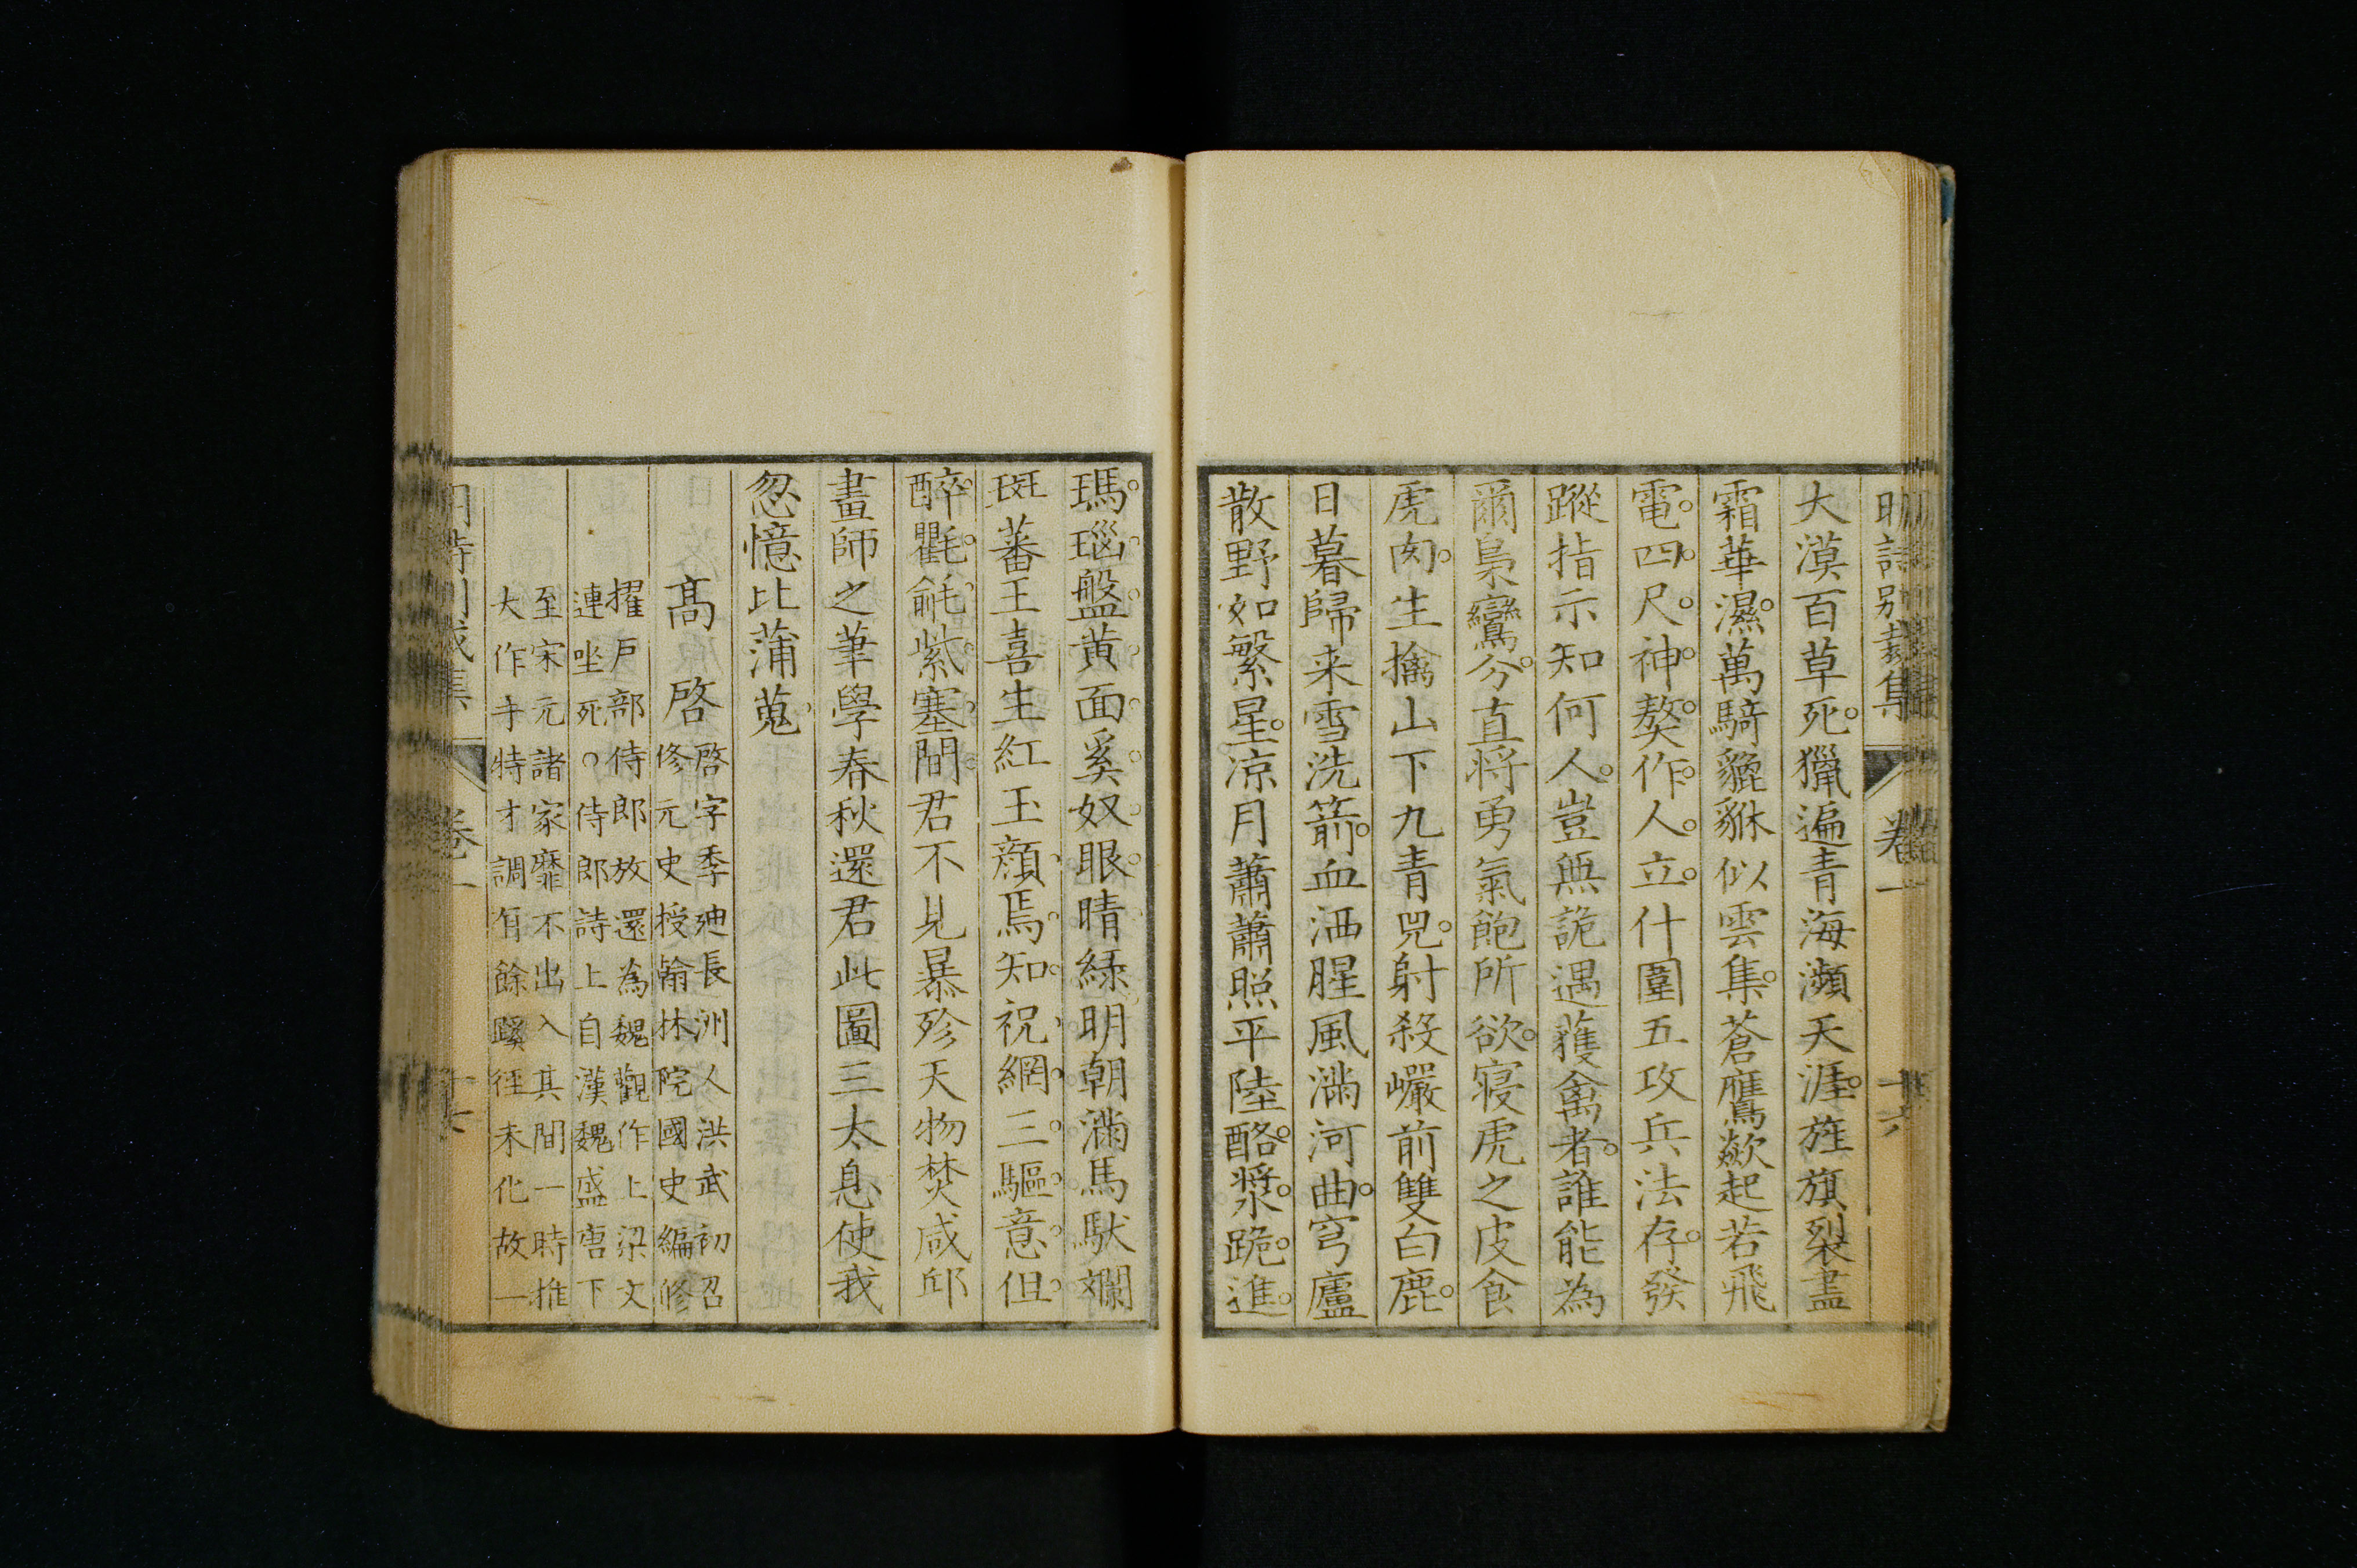 明詩別裁集 卷一 十六
大漠百草死獵遍青海瀕天涯旌旗裂盡
霜華濕萬騎貔貅似雲集蒼鷹歘起若飛
電四尺神獒作人立什圍五攻兵法存發
蹤指示知何人豈無詭遇獲禽者誰能為
爾梟鸞分直将勇氣飽所欲寝虎之皮食
虎肉生擒山下九青兕射殺巖前雙白鹿
日暮歸来雪洗箭血洒腥風滿河曲穹廬
散野如繁星凉月蕭蕭照平陸酪漿跪進
瑪瑙盤黄面奚奴眼晴綠明朝滿馬馱斕
斑蕃王喜生紅玉顔焉知祝網三驅意但
醉氍毹紫塞間君不見暴殄天物焚咸邱
畫師之筆學春秋還君此圖三太息使我
忽憶比蒲蒐
高啓 啓字季迪長洲人洪武初召
修元史授翰林院國史編修
擢戶部侍郎放還為魏觀作上梁文
連坐死○侍郎詩上自漢魏盛唐下
至宋元諸家靡不出入其間一時推
大作手特才調有餘蹊徑未化故一
卷一